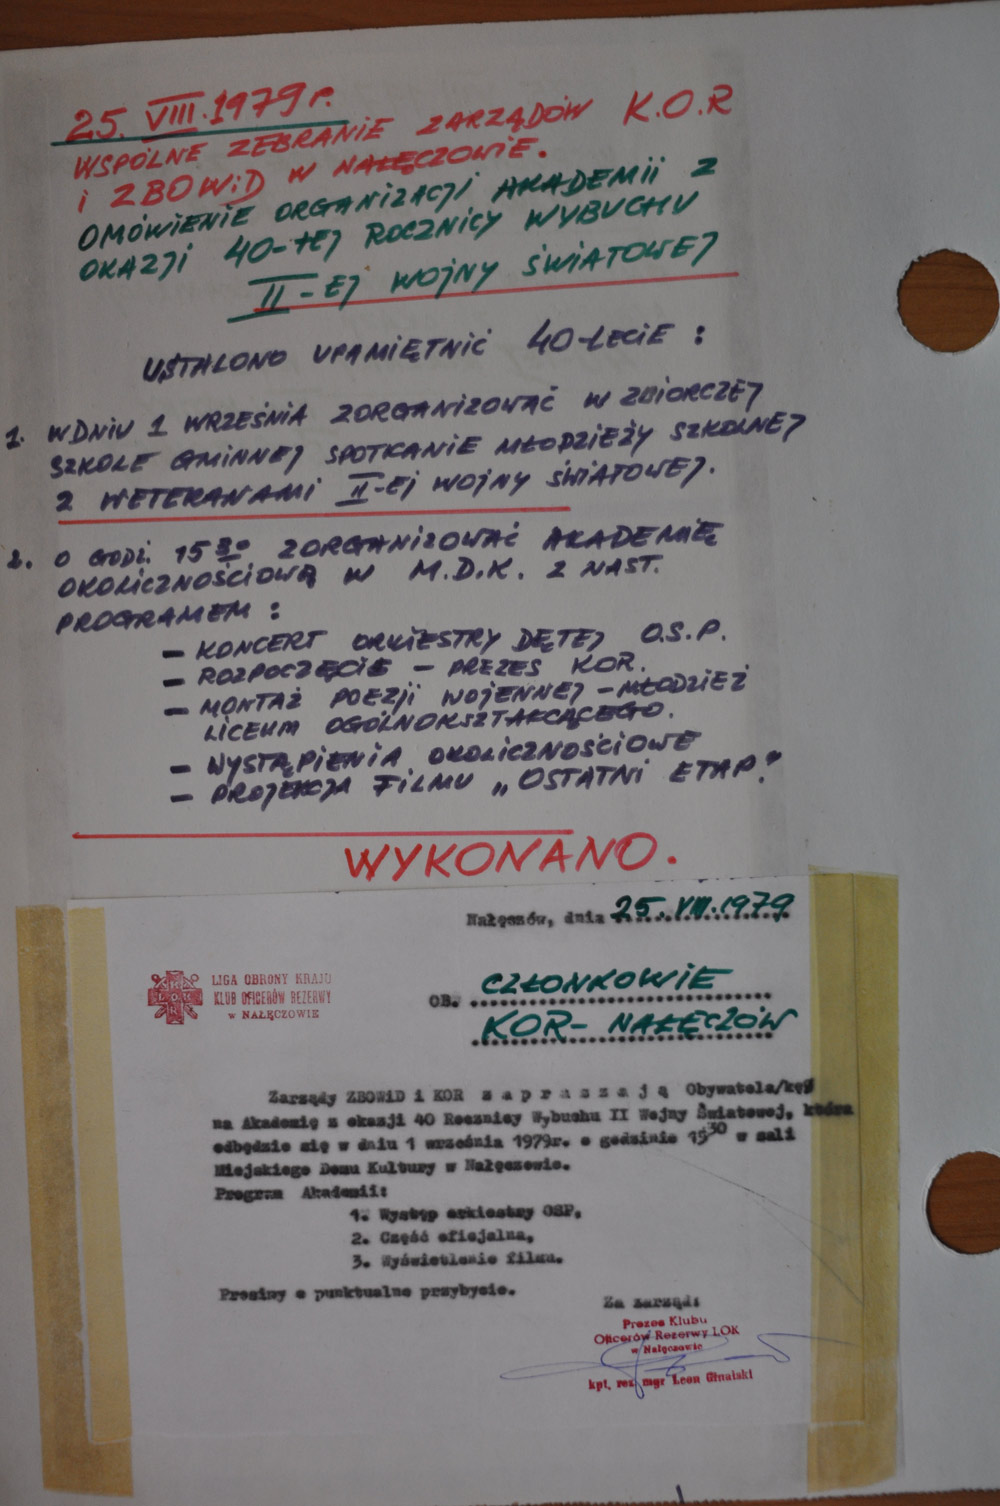 25. VIII. 1979 r.
WSPÓLNE ZEBRANIE ZARZĄDÓW K.O.R
i ZBOWiD W NAŁĘCZOWIE.
OMÓWIENIE ORGANIZACJI AKADEMII Z
OKAZJI 40-tej ROCZNICY WYBUCHU
II-EJ WOJNY ŚWIATOWEJ
USTALONO UPAMIĘTNIĆ 40-LECIE :
1. W DNIU 1 WRZEŚNIA ZORGANIZOWAĆ W ZBIORCZEJ
SZKOLE GMINNEJ SPOTKANIE MŁODZIEŻY SZKOLNEJ
Z WETERANAMI II-EJ WOJNY ŚWIATOWEJ.
2. O GODZ. 15 30 ZORGANIZOWAĆ AKADEMIĘ
OKOLICZNOŚCIOWĄ W M.D.K. Z NAST.
PROGRAMEM :
– KONCERT ORKIESTRY DĘTEJ O.S.P.
– ROZPOCZĘCIE – PREZES KOR.
– MONTAŻ POEZJI WOJENNEJ – MŁODZIEŻ
LICEUM OGÓLNOKSZTAŁCĄCEGO.
– WYSTĄPIENIA OKOLICZNOŚCIOWE
– PROJEKCJA FILMU „OSTATNI ETAP."
WYKONANO.
Nałęczów, dnia 25.VIII.1979
LIGA OBRONY KRAJU
KLUB OFICERÓW REZERWY
w NAŁĘCZOWIE
OB. CZŁONKOWIE
KOR- NAŁĘCZÓW
Zarządy ZBOWiD i KOR z a p r a s z a j ą Obywatela/kę/
na Akademię z okazji 40 Rocznicy Wybuchu II Wojny Światowej, która
odbędzie się w dniu 1 września 1979r. o godzinie 15 30 w sali
Miejskiego Domu Kultury w Nałęczowie.
Program Akademii:
1. Występ orkiestry OSP,
2. Część oficjalna,
3. Wyświetlenie filmu.
Prosimy o punktualne przybycie.
Za zarząd:
Prezes Klubu
Oficerów Rezerwy LOK
w Nałęczowie
kpt. rez. mgr Leon Gnalski